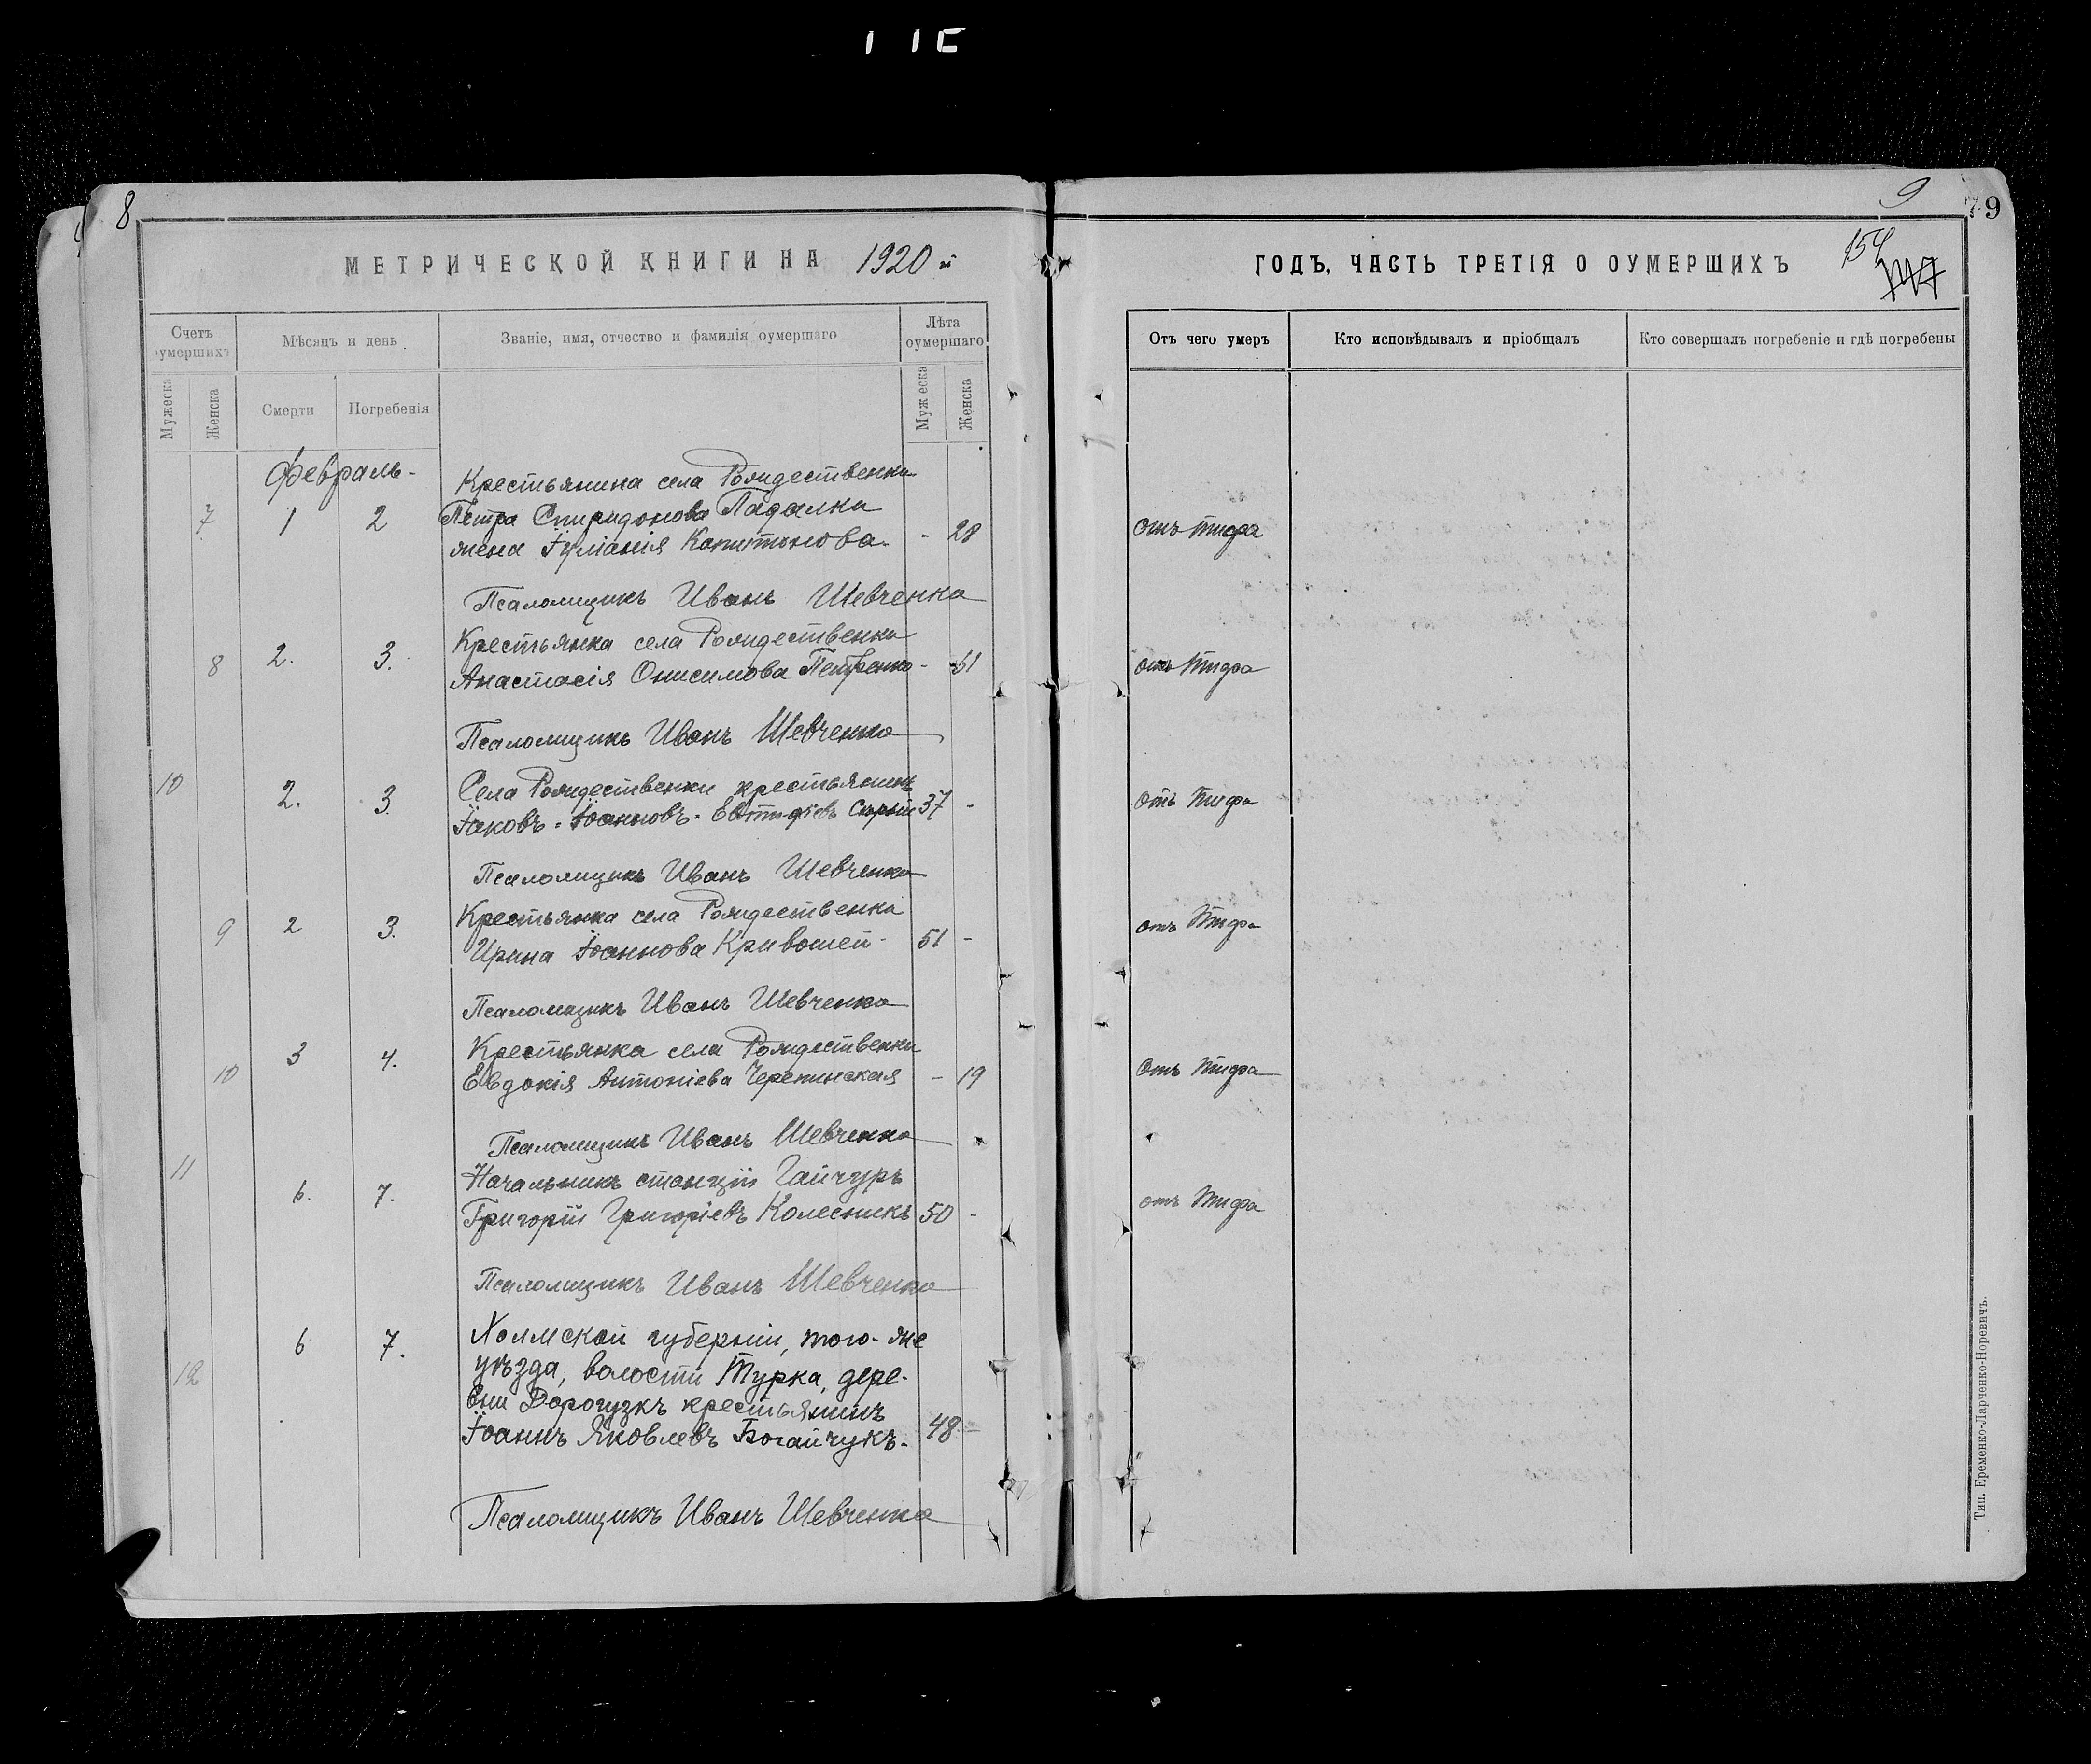 8
9
79
МЕТРИЧЕСКОЙ КНИГИ НА 1920 й
ГОДЪ, ЧАСТЬ ТРЕТІЯ О ОУМЕРШИХЪ
154
Счетъ оумершихъ
Мѣсяцъ и день
Званіе, имя, отчество и фамилія оумершаго
Лѣта оумершаго
Отъ чего умеръ
Кто исповѣдывалъ и пріобщалъ
Кто совершалъ погребеніе и гдѣ погребены
Мужеска
Женска
Смерти
Погребенія
Мужеска
Женска
Февраль-
Крестьянина села Рождественки
7 1 2 Петра Спиридонова Падалки
жена Іуліанія Капитонова. - 28 отъ тифа
Псаломщикъ Иванъ Шевченко
Крестьянка села Рождественки
8 2. 3. Анастасія Онисимова Петренко - 51 отъ тифа
Псаломщикъ Иванъ Шевченко
10 2. 3. Села Рождественки крестьянинъ
Іаковъ Іоанновъ Евтифіевъ 37 - отъ тифа
Псаломщикъ Иванъ Шевченко
9 2 3. Крестьянка села Рождественки
Ирина Іоаннова Кривошей - 51 - отъ тифа
Псаломщикъ Иванъ Шевченко
3 4. Крестьянка села Рождественки
10 Евдокія Антоніева Черепинская - 19 отъ тифа
Псаломщикъ Иванъ Шевченко
11 6. 7. Начальникъ станціи Гайчуръ
Григорій Григоріевъ Колесникъ 50 - отъ тифа
Псаломщикъ Иванъ Шевченко
6 7. Холмской губерніи, того-же
12 уѣзда, волости Турка, дере-
вни Дорогузкъ крестьянинъ
Іоаннъ Яковлевъ Богайчукъ. 48 -
Псаломщикъ Иванъ Шевченко
Тип. Еременко-Ларченко-Норевичъ.